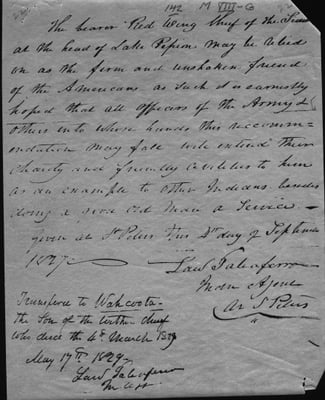 142 M VIII-6
The bearer Red Wing Chief of the Sioux
at the head of Lake Pepin may be relied
on as the firm and unshaken friend
of the Americans as such it is earnestly
hoped that all officers of the Army &
others into whose hands this recomm-
endation may fall will extend their
charity and friendly civilities to him
as an example to other Indians besides
doing a good old man a service —
given at St Peters this day of Septem
1827
Law Taliaferro
Indn Agent
at St Peters
Transferred to Wahcoota
the Son of the chief
who died the 4th March 1829
May 17th 1829
Law Taliaferro